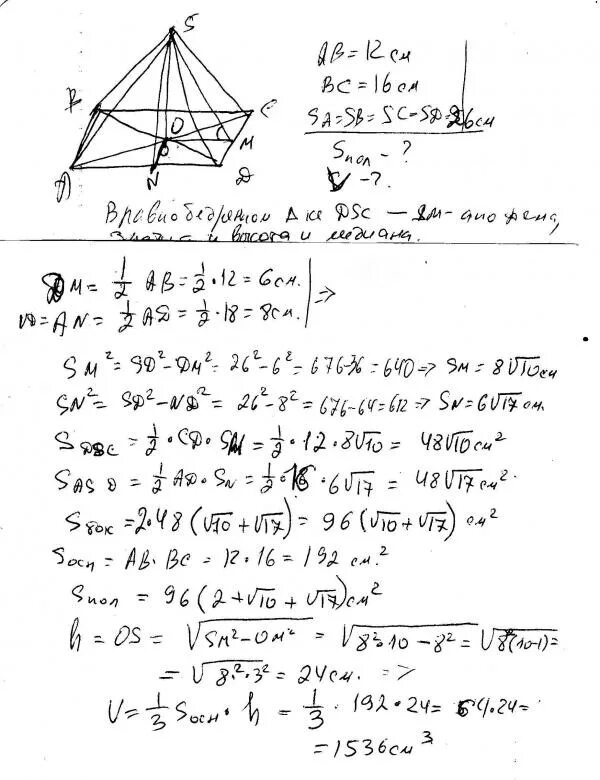 S
B
C
O
M
A
N
D
AB = 12 см
BC = 16 см
SA = SB = SC = SD = 26 см
Sпол - ?
V - ?.
В равнобедренном Δ ке DSC — SM - апофема,
значит и высота и медиана.
DM = 1/2 AB = 1/2 · 12 = 6 см.
ND = AN = 1/2 AD = 1/2 · 18 = 8 см. ⇒
SM² = SD² - DM² = 26² - 6² = 676 - 36 = 640 ⇒ SM = 8√10 см
SN² = SD² - ND² = 26² - 8² = 676 - 64 = 612 ⇒ SN = 6√17 см.
SDSC = 1/2 · CD · SM = 1/2 · 12 · 8√10 = 48√10 см²
SASD = 1/2 AD · SN = 1/2 · 16 · 6√17 = 48√17 см².
Sбок = 2·48 (√10 + √17) = 96 (√10 + √17) см²
Sосн = AB · BC = 12 · 16 = 192 см.²
Sпол = 96 (2 + √10 + √17) см²
h = OS = √SM² - OM² = √8²·10 - 8² = √8²(10-1) =
= √8²·3² = 24 см. ⇒
V = 1/3 Sосн · h = 1/3 · 192 · 24 = 64 · 24 =
= 1536 см³